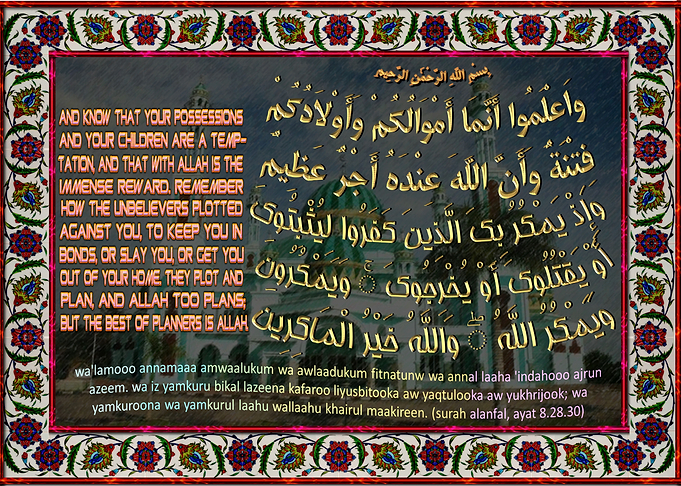 بِسْمِ اللَّهِ الرَّحْمَنِ الرَّحِيمِ
AND KNOW THAT YOUR POSSESSIONS
AND YOUR CHILDREN ARE A TEMP-
TATION, AND THAT WITH ALLAH IS THE
IMMENSE REWARD. REMEMBER
HOW THE UNBELIEVERS PLOTTED
AGAINST YOU, TO KEEP YOU IN
BONDS, OR SLAY YOU, OR GET YOU
OUT OF YOUR HOME. THEY PLOT AND
PLAN, AND ALLAH TOO PLANS;
BUT THE BEST OF PLANNERS IS ALLAH.
وَاعْلَمُوا أَنَّمَا أَمْوَالُكُمْ وَأَوْلَادُكُمْ
فِتْنَةٌ وَأَنَّ اللَّهَ عِنْدَهُ أَجْرٌ عَظِيمٌ
وَإِذْ يَمْكُرُ بِكَ الَّذِينَ كَفَرُوا لِيُثْبِتُوكَ
أَوْ يَقْتُلُوكَ أَوْ يُخْرِجُوكَ ۚ وَيَمْكُرُونَ
وَيَمْكُرُ اللَّهُ ۖ وَاللَّهُ خَيْرُ الْمَاكِرِينَ
wa'lamooo annamaaa amwaalukum wa awlaadukum fitnatunw wa annal laaha 'indahooo ajrun
azeem. wa iz yamkuru bikal lazeena kafaroo liyusbitooka aw yaqtulooka aw yukhrijook; wa
yamkuroona wa yamkurul laahu wallaahu khairul maakireen. (surah alanfal, ayat 8.28.30)